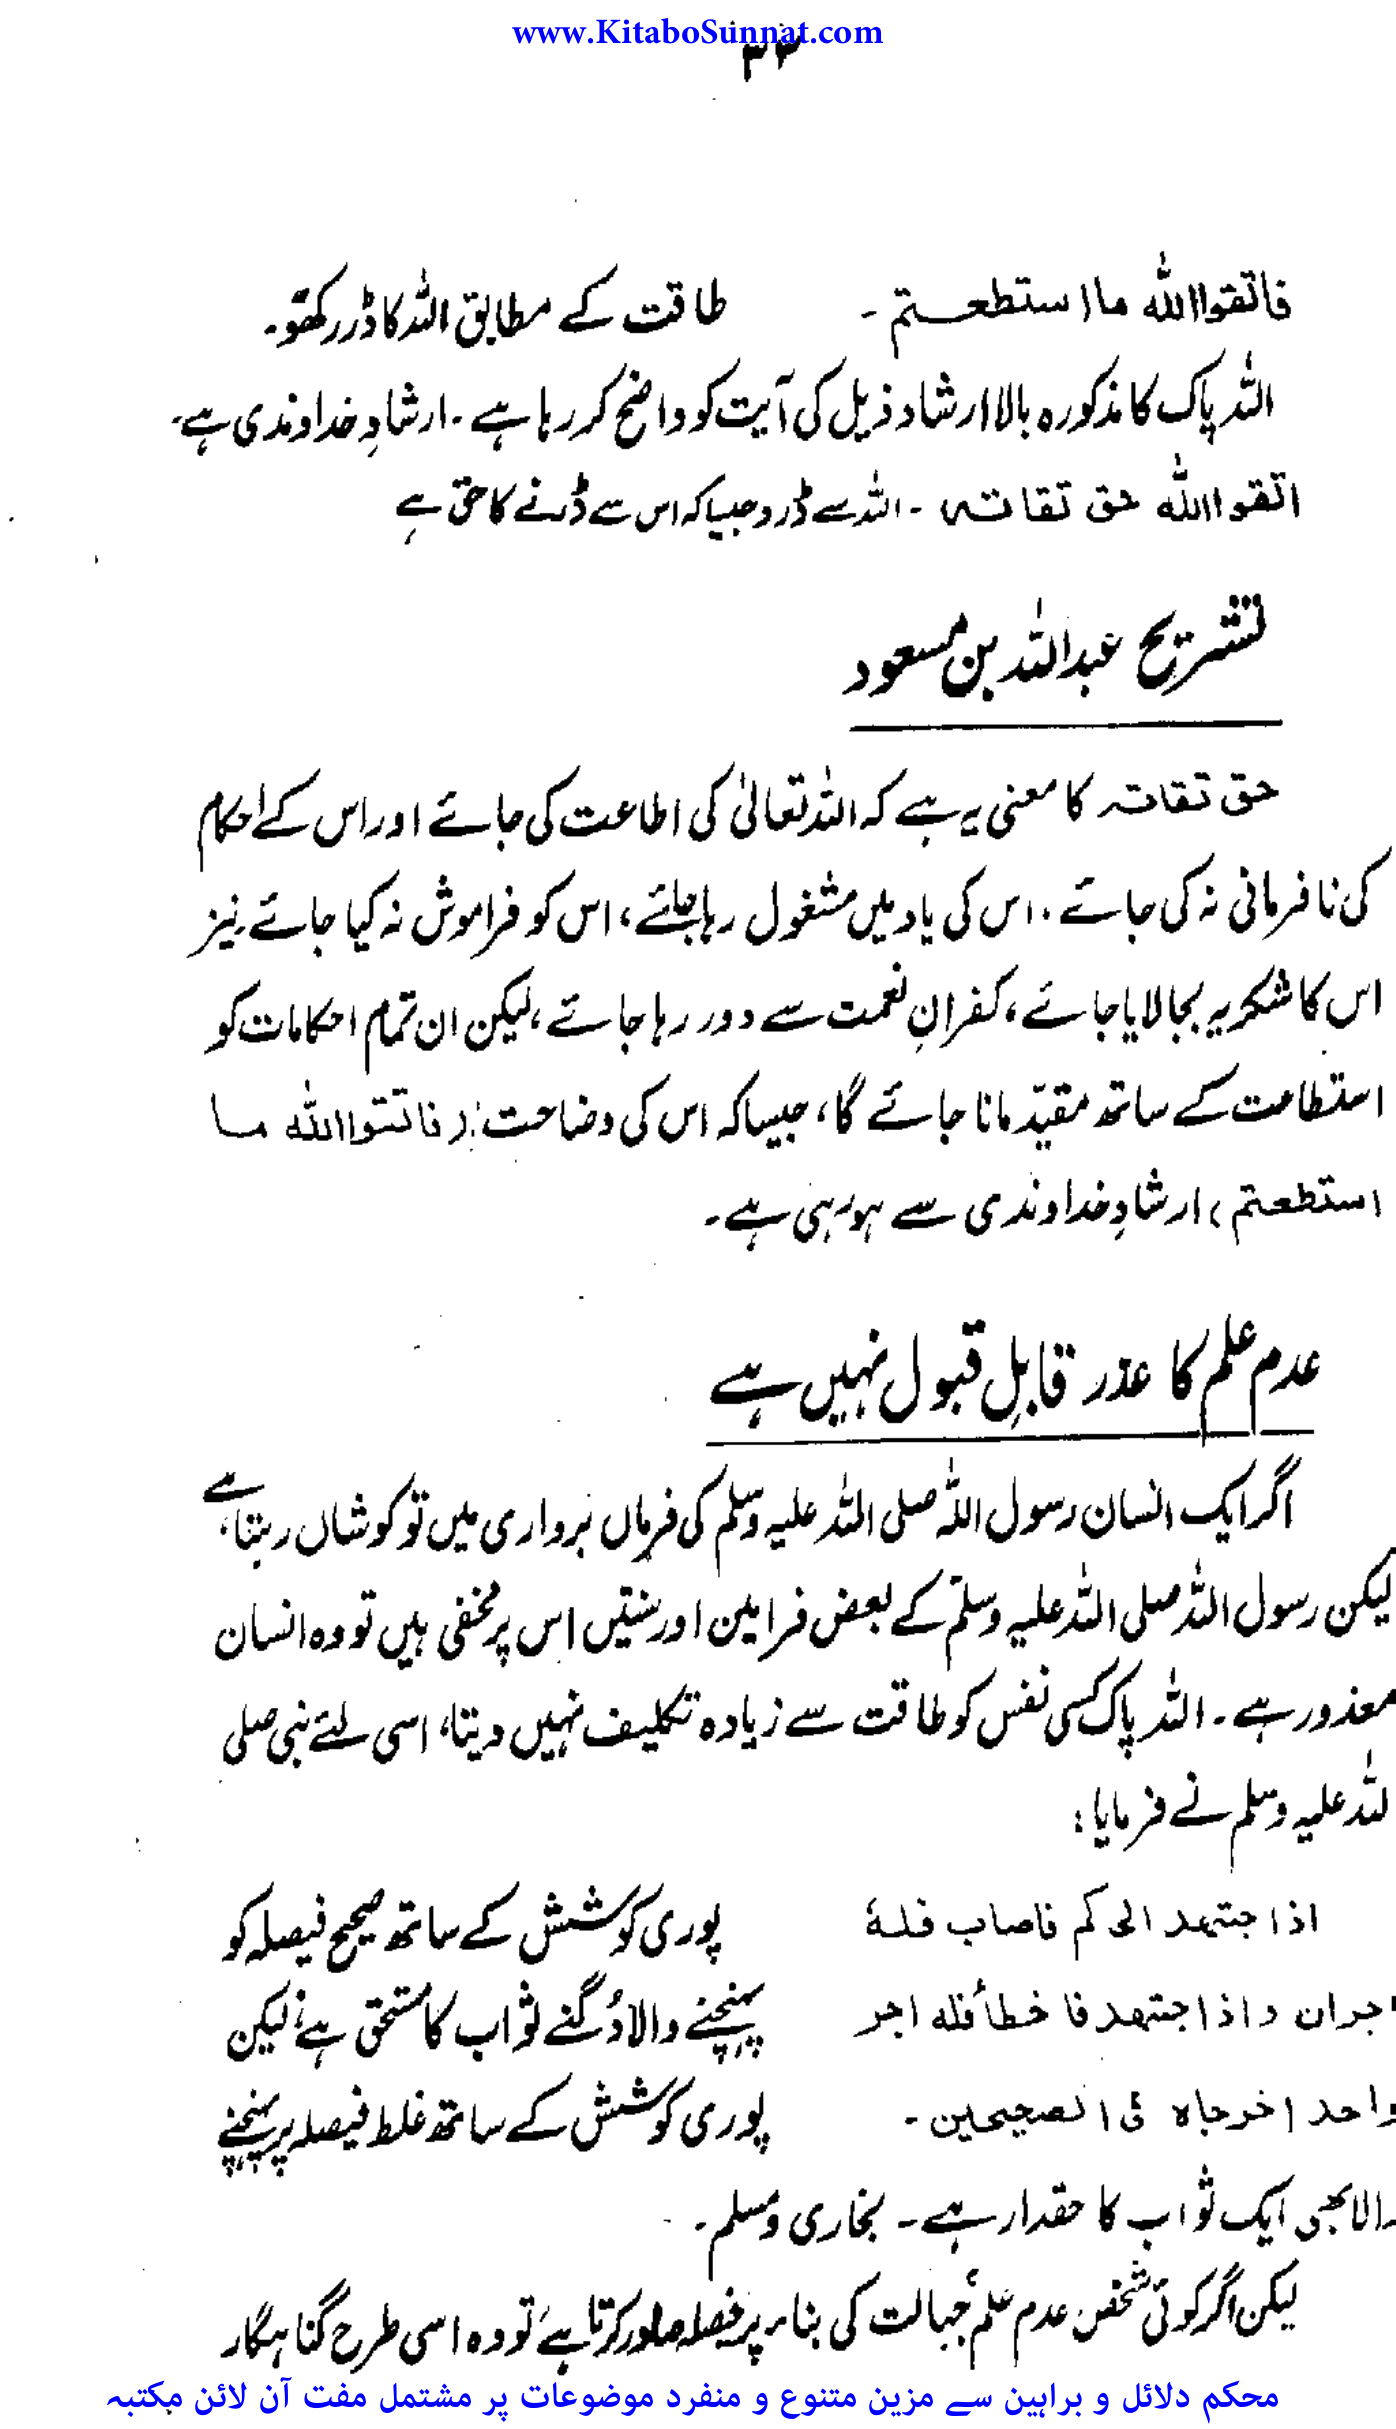 www.KitaboSunnat.com
۳۳
فاتقوا الله ما استطعتم ۔ طاقت کے مطابق اللہ کا ڈر رکھو۔
اللہ پاک کا مذکورہ بالا ارشاد ذیل کی آیت کو واضح کر رہا ہے ۔ ارشادِ خداوندی ہے۔
اتقوا الله حق تقاتہ ۔ اللہ سے ڈرو جیسا کہ اس سے ڈرنے کا حق ہے
تشریح عبداللہ بن مسعود
حق تقاتہ کا معنی یہ ہے کہ اللہ تعالیٰ کی اطاعت کی جائے اور اس کے احکام
کی نافرمانی نہ کی جائے ۔ اس کی یاد میں مشغول رہا جائے ، اس کو فراموش نہ کیا جائے نیز
اس کا شکریہ بجا لایا جائے ، کفرانِ نعمت سے دور رہا جائے ، لیکن ان تمام احکامات کو
استطاعت کے ساتھ مقیّد مانا جائے گا ، جیسا کہ اس کی وضاحت : ( فاتقوا الله ما
استطعتم ) ارشادِ خداوندی سے ہو رہی ہے ۔
عدم علم کا عذر قابلِ قبول نہیں ہے
اگر ایک انسان رسول اللہ صلی اللہ علیہ وسلم کی فرماں برداری میں تو کوشاں رہتا ہے ،
لیکن رسول اللہ صلی اللہ علیہ وسلّم کے بعض فرامین اور سنتیں اس پر مخفی ہیں تو وہ انسان
معذور ہے ۔ اللہ پاک کسی نفس کو طاقت سے زیادہ تکلیف نہیں دیتا ، اسی لئے نبی صلی
للہ علیہ وسلم نے فرمایا :
اذا جتهد الحاکم فاصاب فلهٗ پوری کوشش کے ساتھ صحیح فیصلہ کو
اجران واذا اجتهد فاخطأ فله اجر پہنچنے والا دُگنے ثواب کا مستحق ہے ، لیکن
واحد اخرجاه فی الصحیحین ۔ پوری کوشش کے ساتھ غلط فیصلہ پر پہنچنے
والا بھی ایک ثواب کا حقدار ہے ۔ بخاری ومسلم ۔
لیکن اگر کوئی شخص عدم علم ، جہالت کی بناء پر فیصلہ صادر کرتا ہے تو وہ اسی طرح گناہگار
محکم دلائل و براہین سے مزین متنوع و منفرد موضوعات پر مشتمل مفت آن لائن مکتبہ